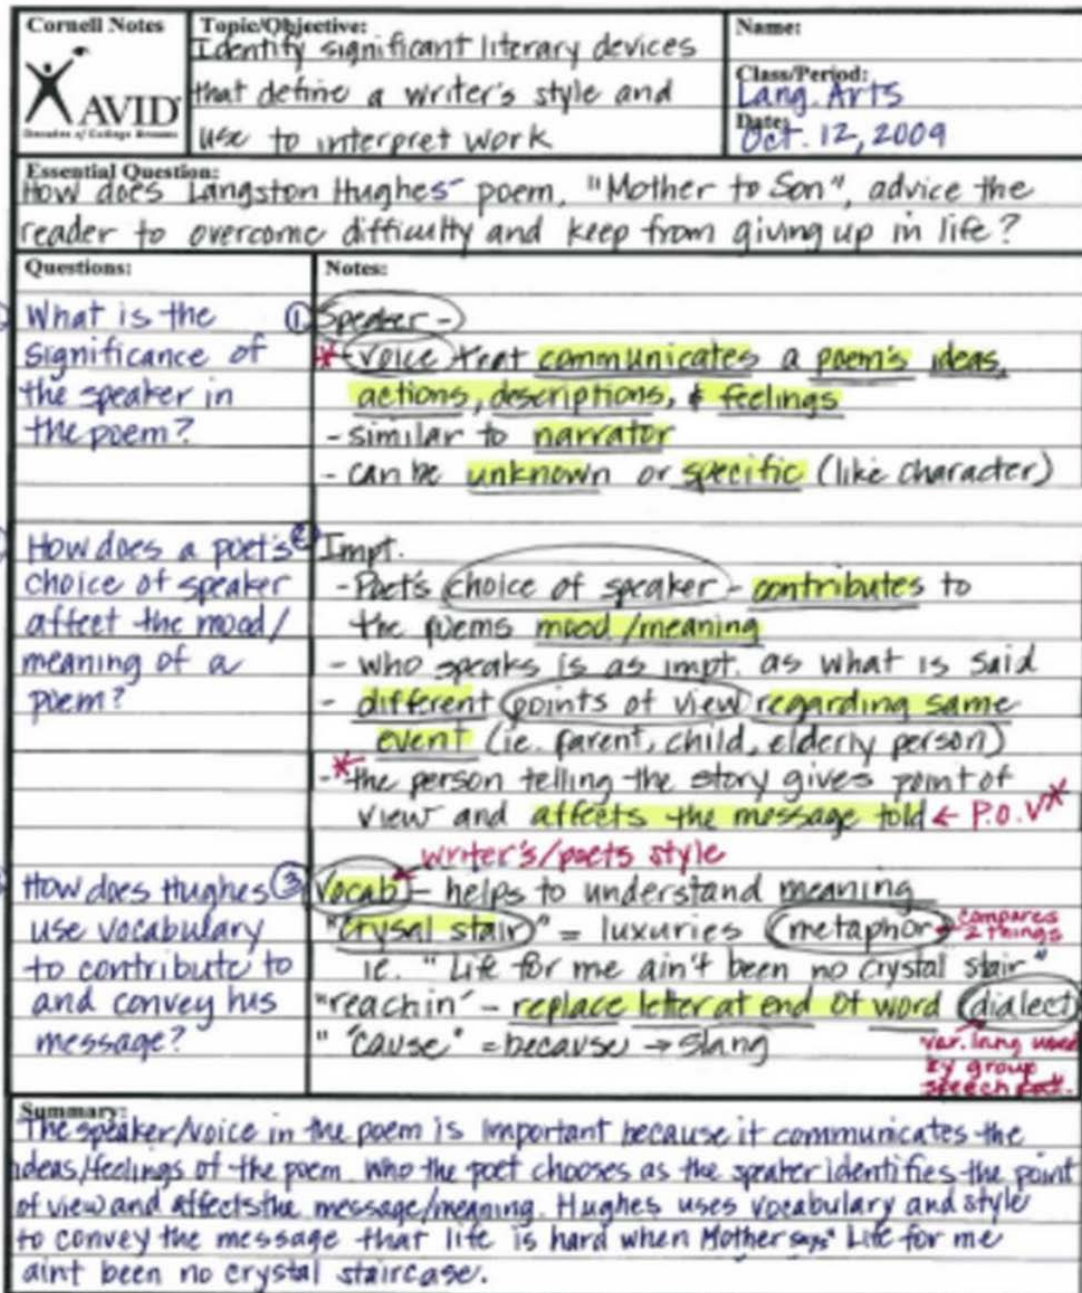 Cornell Notes
AVID
Decades of College Dreams
Topic/Objective:
Identify significant literary devices
that define a writer's style and
use to interpret work
Name:
Class/Period:
Lang. Arts
Date:
Oct. 12, 2009
Essential Question:
How does Langston Hughes' poem, "Mother to Son", advice the
reader to overcome difficulty and keep from giving up in life?
Questions:
What is the
significance of
the speaker in
the poem?
How does a poet's
choice of speaker
affect the mood/
meaning of a
poem?
How does Hughes
use vocabulary
to contribute to
and convey his
message?
Notes:
① Speaker -
* - voice that communicates a poem's ideas,
actions, descriptions, & feelings
- similar to narrator
- can be unknown or specific (like character)
② Impt.
- Poet's choice of speaker - contributes to
the poems mood/meaning
- who speaks is as impt. as what is said
- different points of view regarding same
event (ie. parent, child, elderly person)
- * the person telling the story gives point of
view and affects the message told ← P.O.V *
writer's/poets style
③ Vocab - helps to understand meaning
"crysal stair" = luxuries metaphor - compares
2 things
ie. "Life for me ain't been no crystal stair"
"reachin' - replace letter at end of word dialect
" "cause" = because → slang
var. lang used
by group
speech
Summary:
The speaker/voice in the poem is important because it communicates the
ideas/feelings of the poem. Who the poet chooses as the speaker identifies the point
of view and affects the message/meaning. Hughes uses vocabulary and style
to convey the message that life is hard when Mother says "Life for me
aint been no crystal staircase.